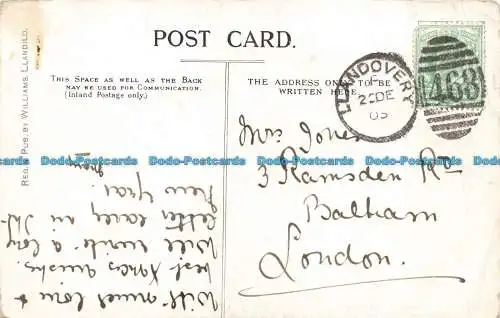 POST CARD.
THIS SPACE AS WELL AS THE BACK
MAY BE USED FOR COMMUNICATION.
(Inland Postage only.)
THE ADDRESS ONLY TO BE
WRITTEN HERE.
LLANDOVERY
DE
05
468
REG. PUB. BY WILLIAMS, LLANDILO.
Mrs Jones
3 Ramsden Rd
Balham
London.
With much love &
best Xmas wishes
Will write a long
letter early in
New Year.
Dodo-Postcards Dodo-Postcards Dodo-Postcards Dodo-Postcards Dodo-Postcards